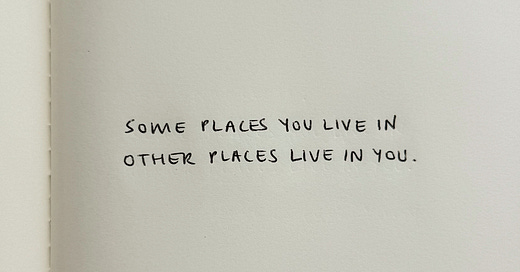 SOME PLACES YOU LIVE IN
OTHER PLACES LIVE IN YOU.